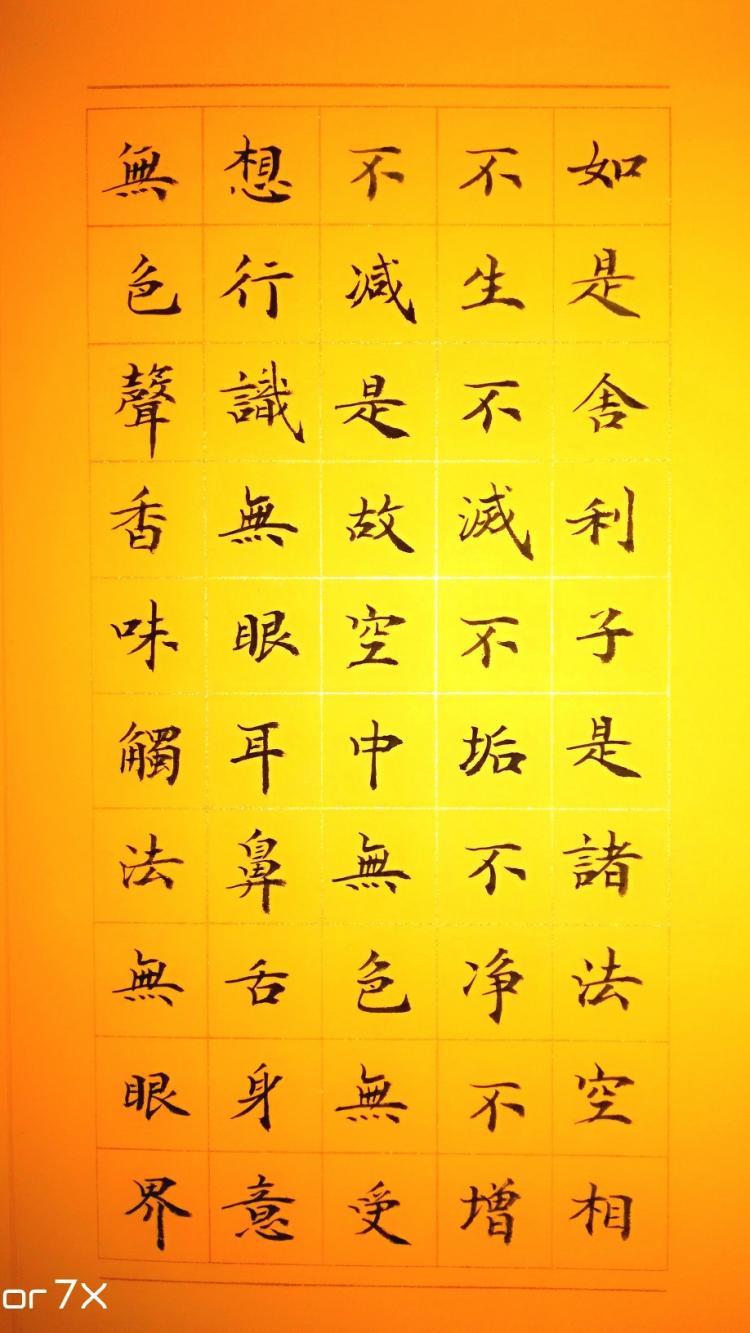 如是舍利子是諸法空相
不生不滅不垢不净不增
不减是故空中無色無受
想行識無眼耳鼻舌身意
無色聲香味觸法無眼界
or 7X